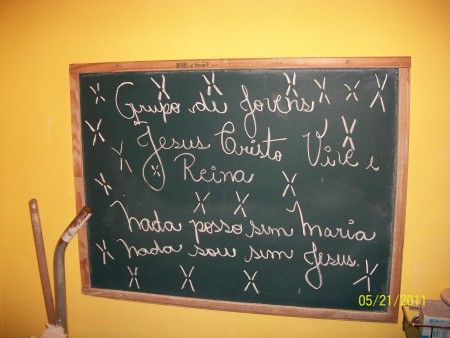 Grupo de Jovens
Jesus Cristo Vive e
Reina
Nada posso sem Maria
Nada sou sem Jesus.
05/21/2011